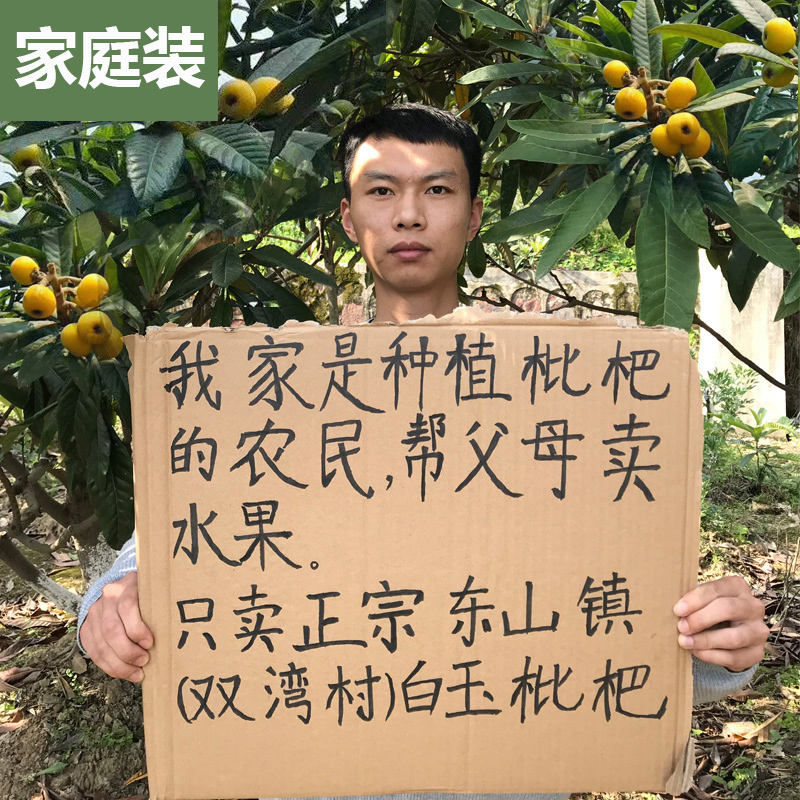 家庭装
我家是种植枇杷
的农民,帮父母卖
水果。
只卖正宗东山镇
(双湾村)白玉枇杷